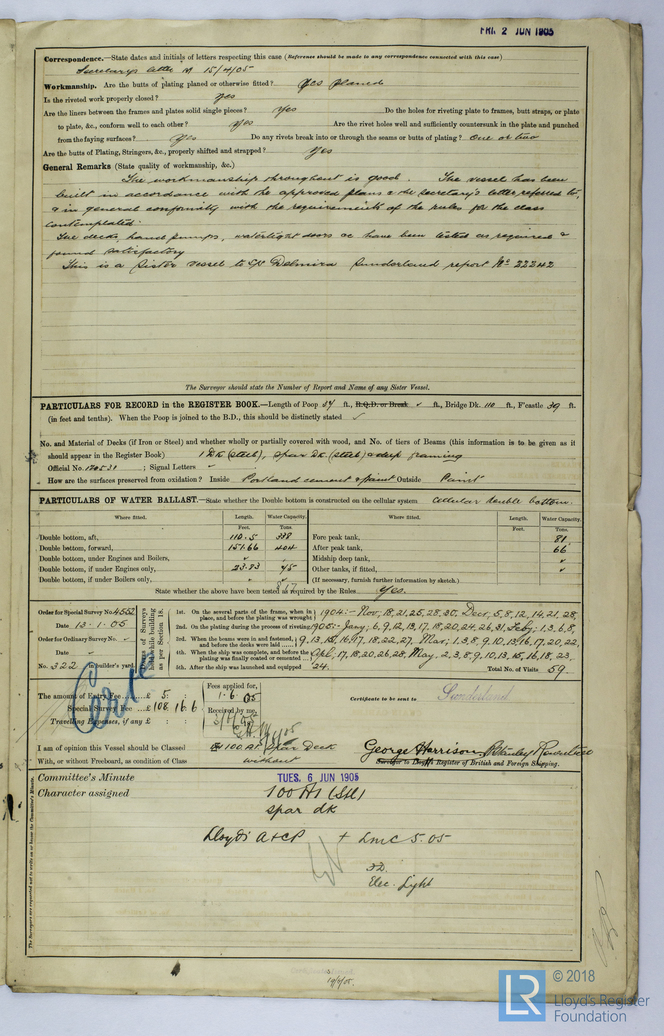 FRI. 2 JUN 1905
Correspondence.—State dates and initials of letters respecting this case (Reference should be made to any correspondence connected with this case)
Secretary's letter M 15/4/05
Workmanship. Are the butts of plating planed or otherwise fitted? Yes planed
Is the riveted work properly closed? Yes
Are the liners between the frames and plates solid single pieces? Yes Do the holes for riveting plate to frames, butt straps, or plate
to plate, &c., conform well to each other? Yes Are the rivet holes well and sufficiently countersunk in the plate and punched
from the faying surfaces? Yes Do any rivets break into or through the seams or butts of plating? One or two
Are the butts of Plating, Stringers, &c., properly shifted and strapped? Yes
General Remarks (State quality of workmanship, &c.)
The workmanship throughout is good. The vessel has been
built in accordance with the approved plans & the Secretary's letter referred to,
& in general conformity with the requirements of the rules for the class
contemplated.
The decks, hand pumps, watertight doors &c have been tested as required &
found satisfactory
This is a Sister vessel to SS Delmira Sunderland report No 22242
The Surveyor should state the Number of Report and Name of any Sister Vessel.
PARTICULARS FOR RECORD in the REGISTER BOOK.—Length of Poop 34 ft., R.Q.D. or Break ✓ ft., Bridge Dk. 110 ft., F'castle 39 ft.
(in feet and tenths). When the Poop is joined to the B.D., this should be distinctly stated ✓
No. and Material of Decks (if Iron or Steel) and whether wholly or partially covered with wood, and No. of tiers of Beams (this information is to be given as it
should appear in the Register Book) 1 Dk (steel), spar Dk (steel) & deep framing
Official No. 120531 ; Signal Letters
How are the surfaces preserved from oxidation? Inside Portland cement & paint Outside Paint
PARTICULARS OF WATER BALLAST.—State whether the Double bottom is constructed on the cellular system Cellular double bottom.
Where fitted. Length. Water Capacity. Where fitted. Length. Water Capacity.
Feet. Tons. Feet. Tons.
Double bottom, aft, 110.5 338 Fore peak tank, 81
Double bottom, forward, 151.66 404 After peak tank, 66
Double bottom, under Engines and Boilers, Midship deep tank,
Double bottom, if under Engines only, 23.83 75 Other tanks, if fitted,
Double bottom, if under Boilers only, (If necessary, furnish further information by sketch.)
817
State whether the above have been tested as required by the Rules Yes.
Order for Special Survey No. 4552
Date 13.1.05
Order for Ordinary Survey No.
Date
No. 322 in builder's yard.
Dates of Surveys held while building as per Section 18.
1st. On the several parts of the frame, when in place, and before the plating was wrought
2nd. On the plating during the process of riveting
3rd. When the beams were in and fastened, and before the decks were laid
4th. When the ship was complete, and before the plating was finally coated or cemented
5th. After the ship was launched and equipped
1904:- Nov, 18, 21, 25, 28, 30, Decr, 5, 8, 12, 14, 21, 28,
1905:- Jany; 6, 9, 12, 13, 17, 18, 20, 24, 26, 31, Feby; 1, 3, 6, 8,
9, 13, 15, 16, 17, 18, 22, 27. Mar; 1, 3, 8, 9, 10, 13, 16, 17, 20, 22
Apl, 17, 18, 20, 26, 28, May. 2, 3, 8, 9, 10, 13, 15, 16, 18, 23,
24. Total No. of Visits 59
The amount of Entry Fee £ 5 : :
Special Survey Fee £ 108 16 6
Travelling Expenses, if any £ : :
Fees applied for,
1.6.05
Received by me,
Certificate to be sent to Sunderland
I am of opinion this Vessel should be Classed 100 A1 Spar Deck
With, or without Freeboard, as condition of Class without
George Harrison. Stanley Rountree
Surveyor to Lloyd's Register of British and Foreign Shipping.
Committee's Minute TUES. 6 JUN 1905
Character assigned 100 A1 (Stl)
spar dk
Lloyd's A & CP + LMC 5.05
Elec. Light
The Surveyors are requested not to write on or below the Committee's Minute.
LR
© 2018
Lloyd's Register
Foundation